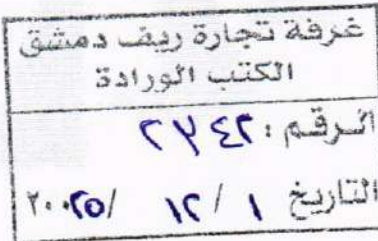 غرفة تجارة ريف دمشق
الكتب الورادة
الرقم: ٢٣٤٢
التاريخ ١ / ١٢ / ٢٠٠٢٥